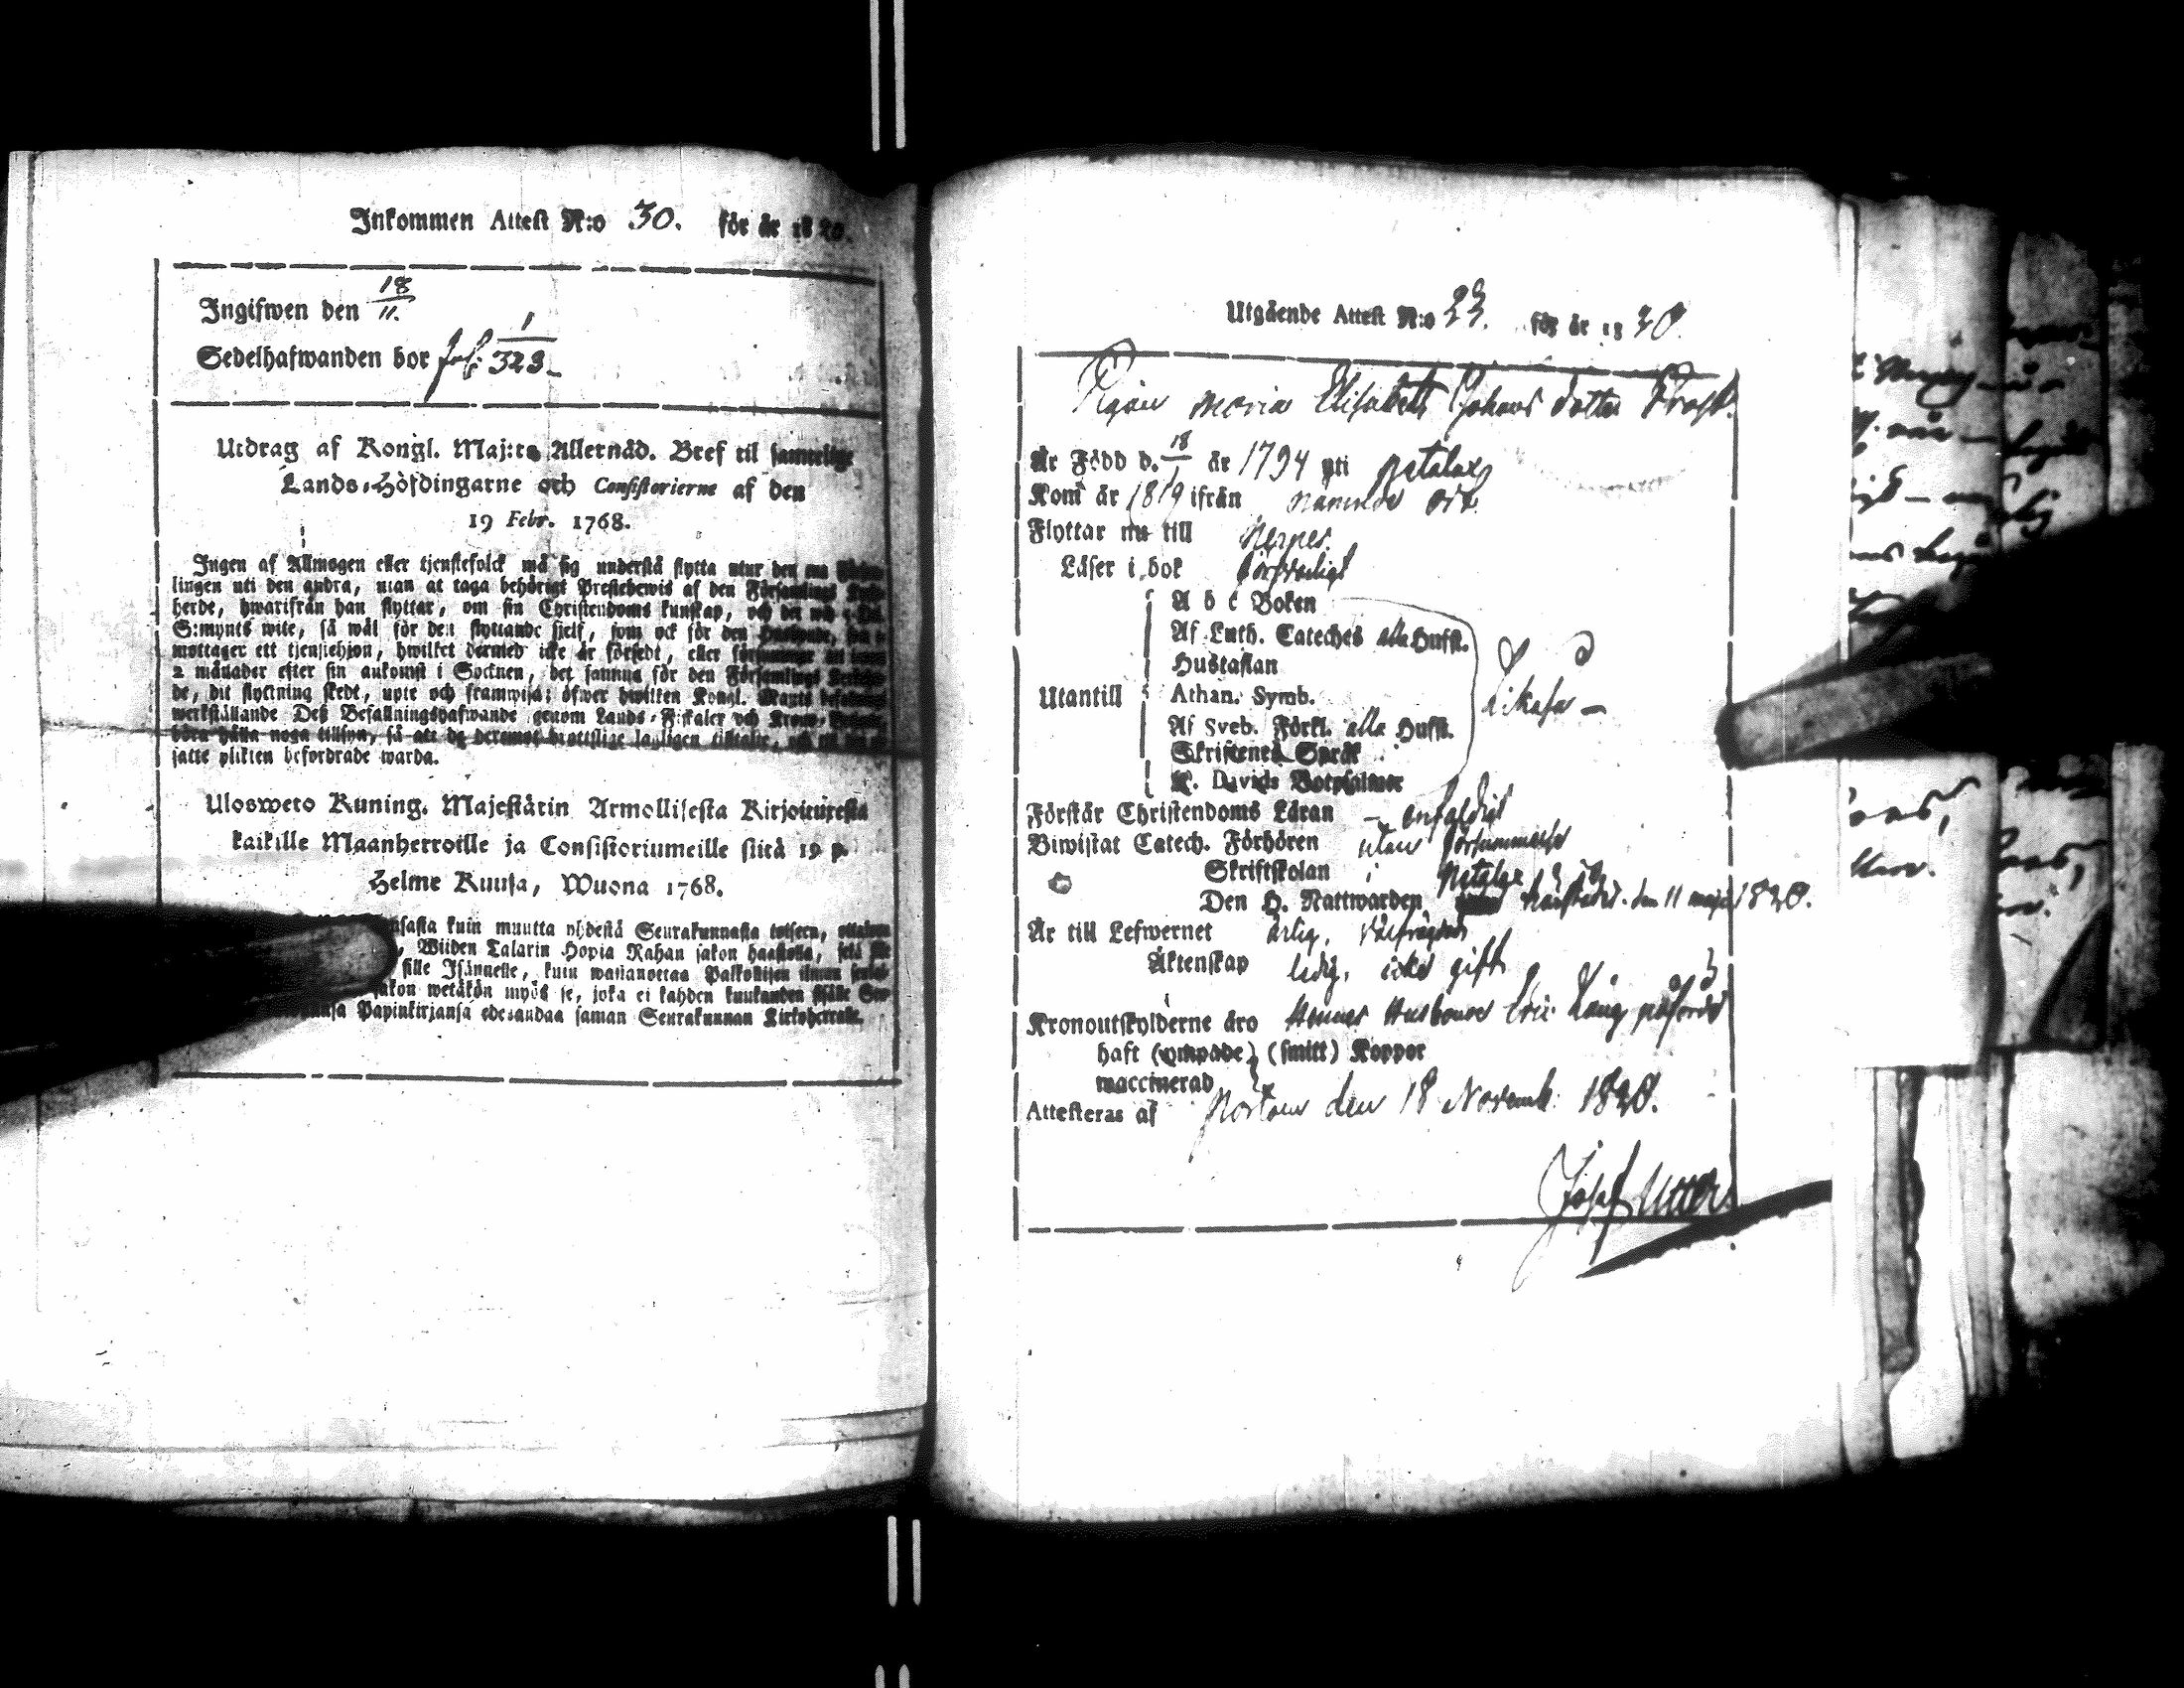 Inkommen Attest N:o 30. för år 1820.
Ingifwen den 18/11.
Sedelhafwanden bor fol. 1/323
Utdrag af Kongl. Maj:ts Allernåd. Bref til samtelige
Lands-Höfdingarne och Consistorierne af den
19 Febr. 1768.
Ingen af Allmogen eller tjenstefolck må sig understå flytta utur den ena
lingen uti den andra, utan at taga behörigt Prestebewis af den Församlings
herde, hwarifrån han flyttar, om sin Christendoms kunskap, och det wid
S:mynts wite, så wäl för den flyttande sjelf, som ock för den Husbonde, som
mottager ett tjenstehjon, hwilket dermed icke är försedt, eller
2 månader efter sin ankomst i Socknen, det samma för den Församlings
de, dit flyttning skedt, upte och framwisa; öfwer hwilken Kongl. Maj:ts befallnings
werkställande Deß Befallningshafwande genom Lands-Fiskaler och Krono-Betjente,
böra hålla noga tillsyn, så att de deremot brottslige lagligen tilltalte, och til
satte plikten befordrade warda.
Ulosweto Kuning. Majestätin Armollisesta Kirjoituxesta
kaikille Maanherroille ja Consistoriumeille siitä 19 p.
Helme Kuusa, Wuona 1768.
kuin muutta yhdestä Seurakunnasta toiseen, ottaman
Wiiden Talarin Hopia Rahan sakon haastolla, sekä
sille Isännelle, kuin wastanottaa Palkollisen ilman
sakon wetäkön myös se, joka ei kahden kuukauden sisälle
Papinkirjansa edesandaa saman Seurakunnan Kirkoherralle.
Utgående Attest N:o 23. för år 1820.
Pigan Maria Elisabeth Johans dotter Frost.
Är Född d. 18/1 år 1794 uti Petalax
Kom år 1819 ifrån nämnde ort
Flyttar nu till Nerpes.
Läser i bok försvarligt
A b c Boken
Af Luth. Cateches alla Hufst.
Hustaflan
Utantill Athan. Symb. Likaså
Af Sveb. Förkl. alla Hufst.
Skriftenes Språk
K. Davids Botpsalmer
Förstår Christendoms Läran enfaldigt
Biwistat Catech. Förhören utan försummelse
Skriftskolan i Petalax
Den H. Nattwarden den 11 maji 1820.
Är till Lefwernet ärlig, välfrägdad
Äktenskap ledig, icke gift
Kronoutskylderne äro Hennes Husbonde Eric Lång påförd
haft (ympade) (smitt) Koppor
waccinerad
Attesteras af Pörtom den 18 Novemb: 1820.
Josef Utter